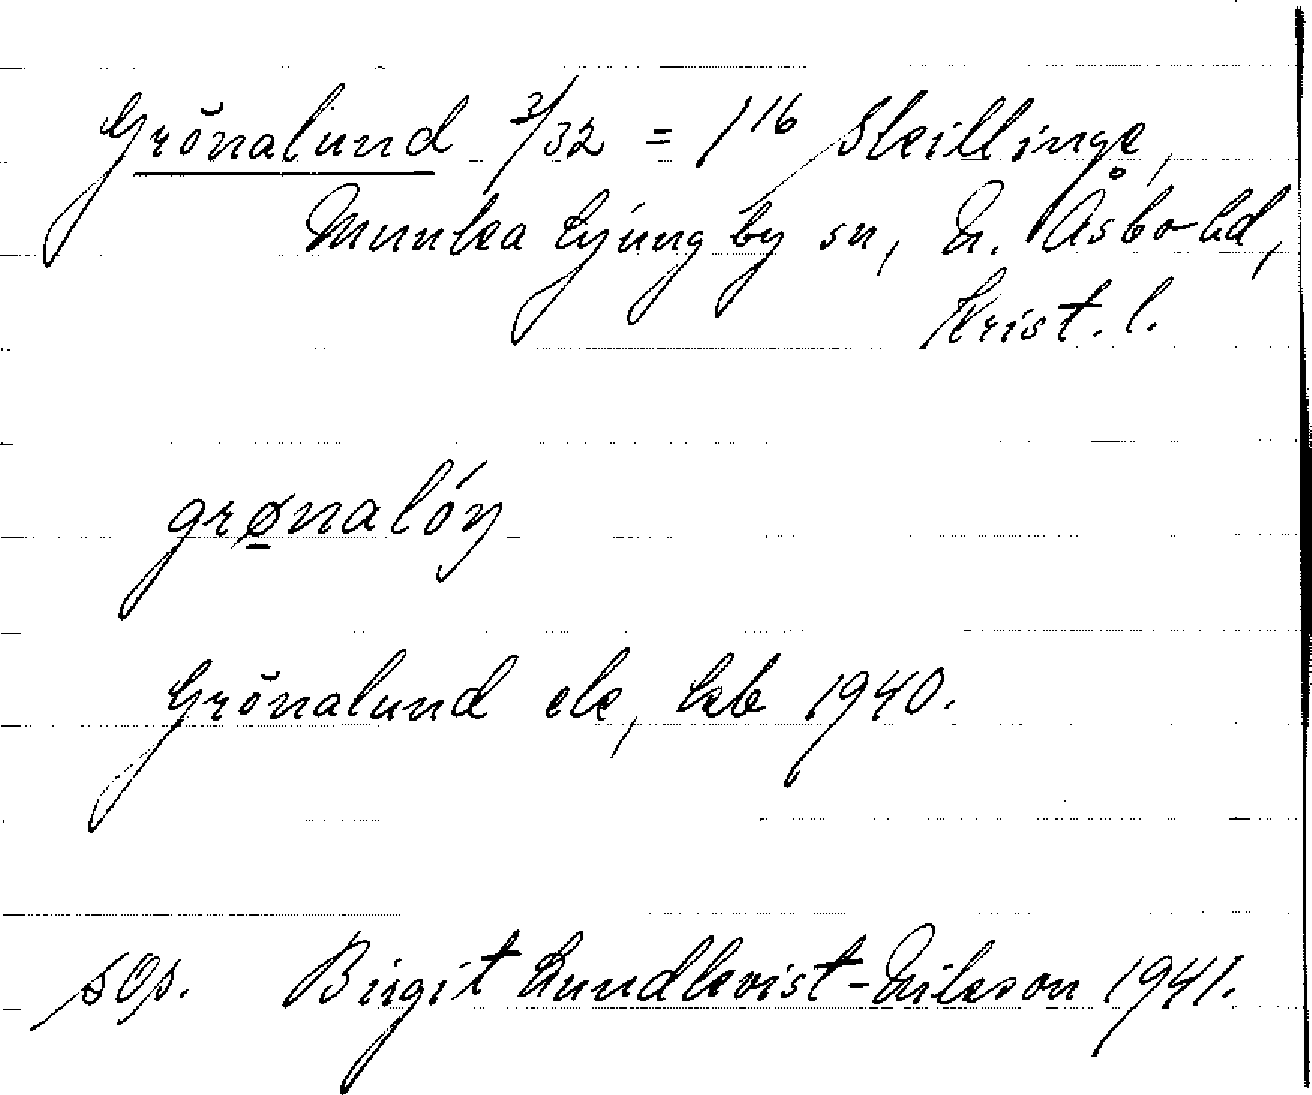 Grönalund 3/32 = 1¹⁶ Skillinge,
Munka Ljungby sn, N. Åsbo hd,
Krist. l.
grø̲nalóŋ
Grönalund ek, kb 1940.
SOs. Birgit Lundkvist-Nilsson 1941.